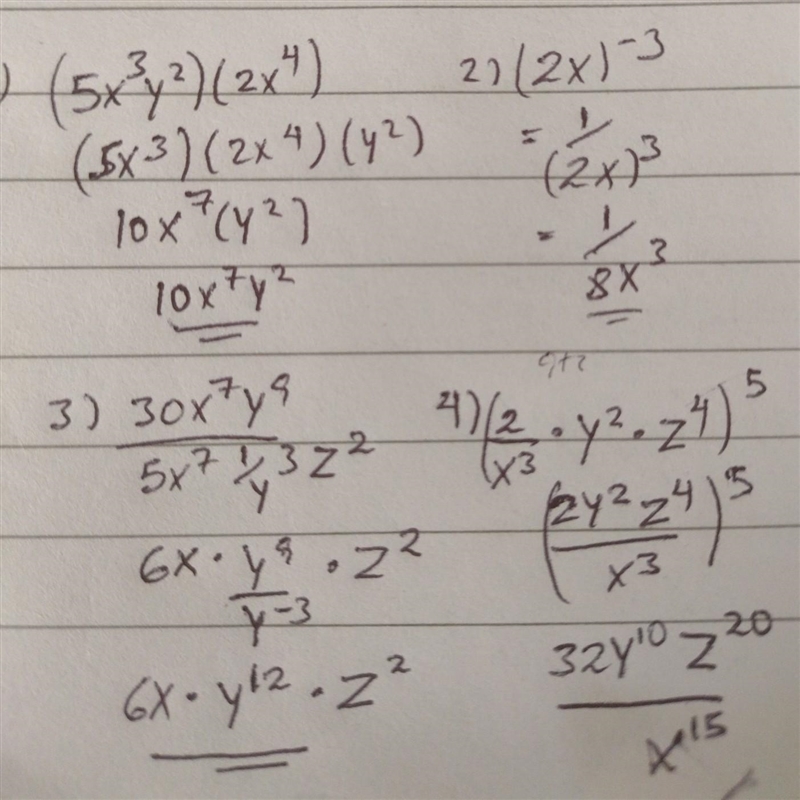 ) (5x³y²)(2x⁴)
(5x³)(2x⁴)(y²)
10x⁷(y²)
10x⁷y²
2) (2x)⁻³
= 1/(2x)³
= 1/8x³
3) 30x⁷y⁹
5x⁷ 1/y³ z²
6x · y⁹/y⁻³ · z²
6x · y¹² · z²
4) (2/x³ · y² · z⁴)⁵
(2y² z⁴/x³)⁵
32y¹⁰ z²⁰
x¹⁵